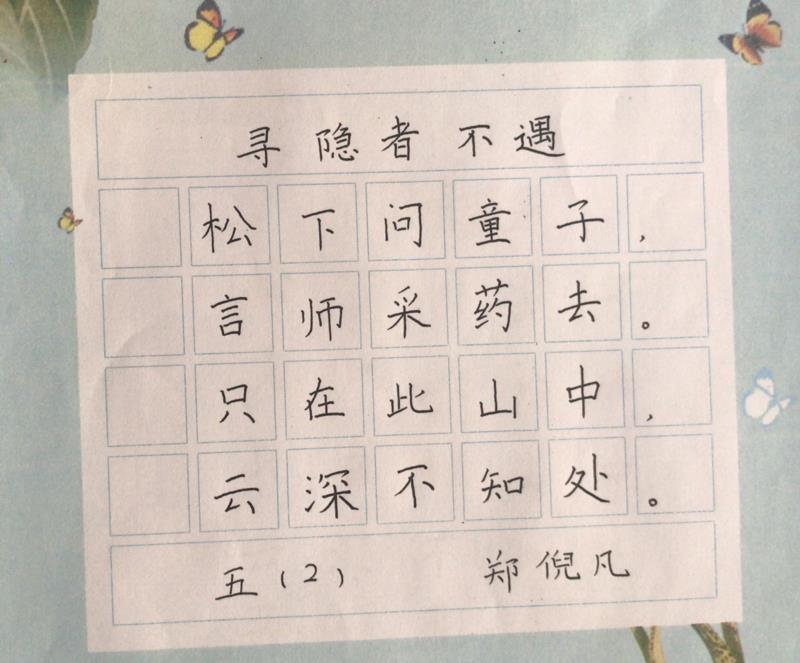 寻隐者不遇
松下问童子，
言师采药去。
只在此山中，
云深不知处。
五（2） 郑倪凡